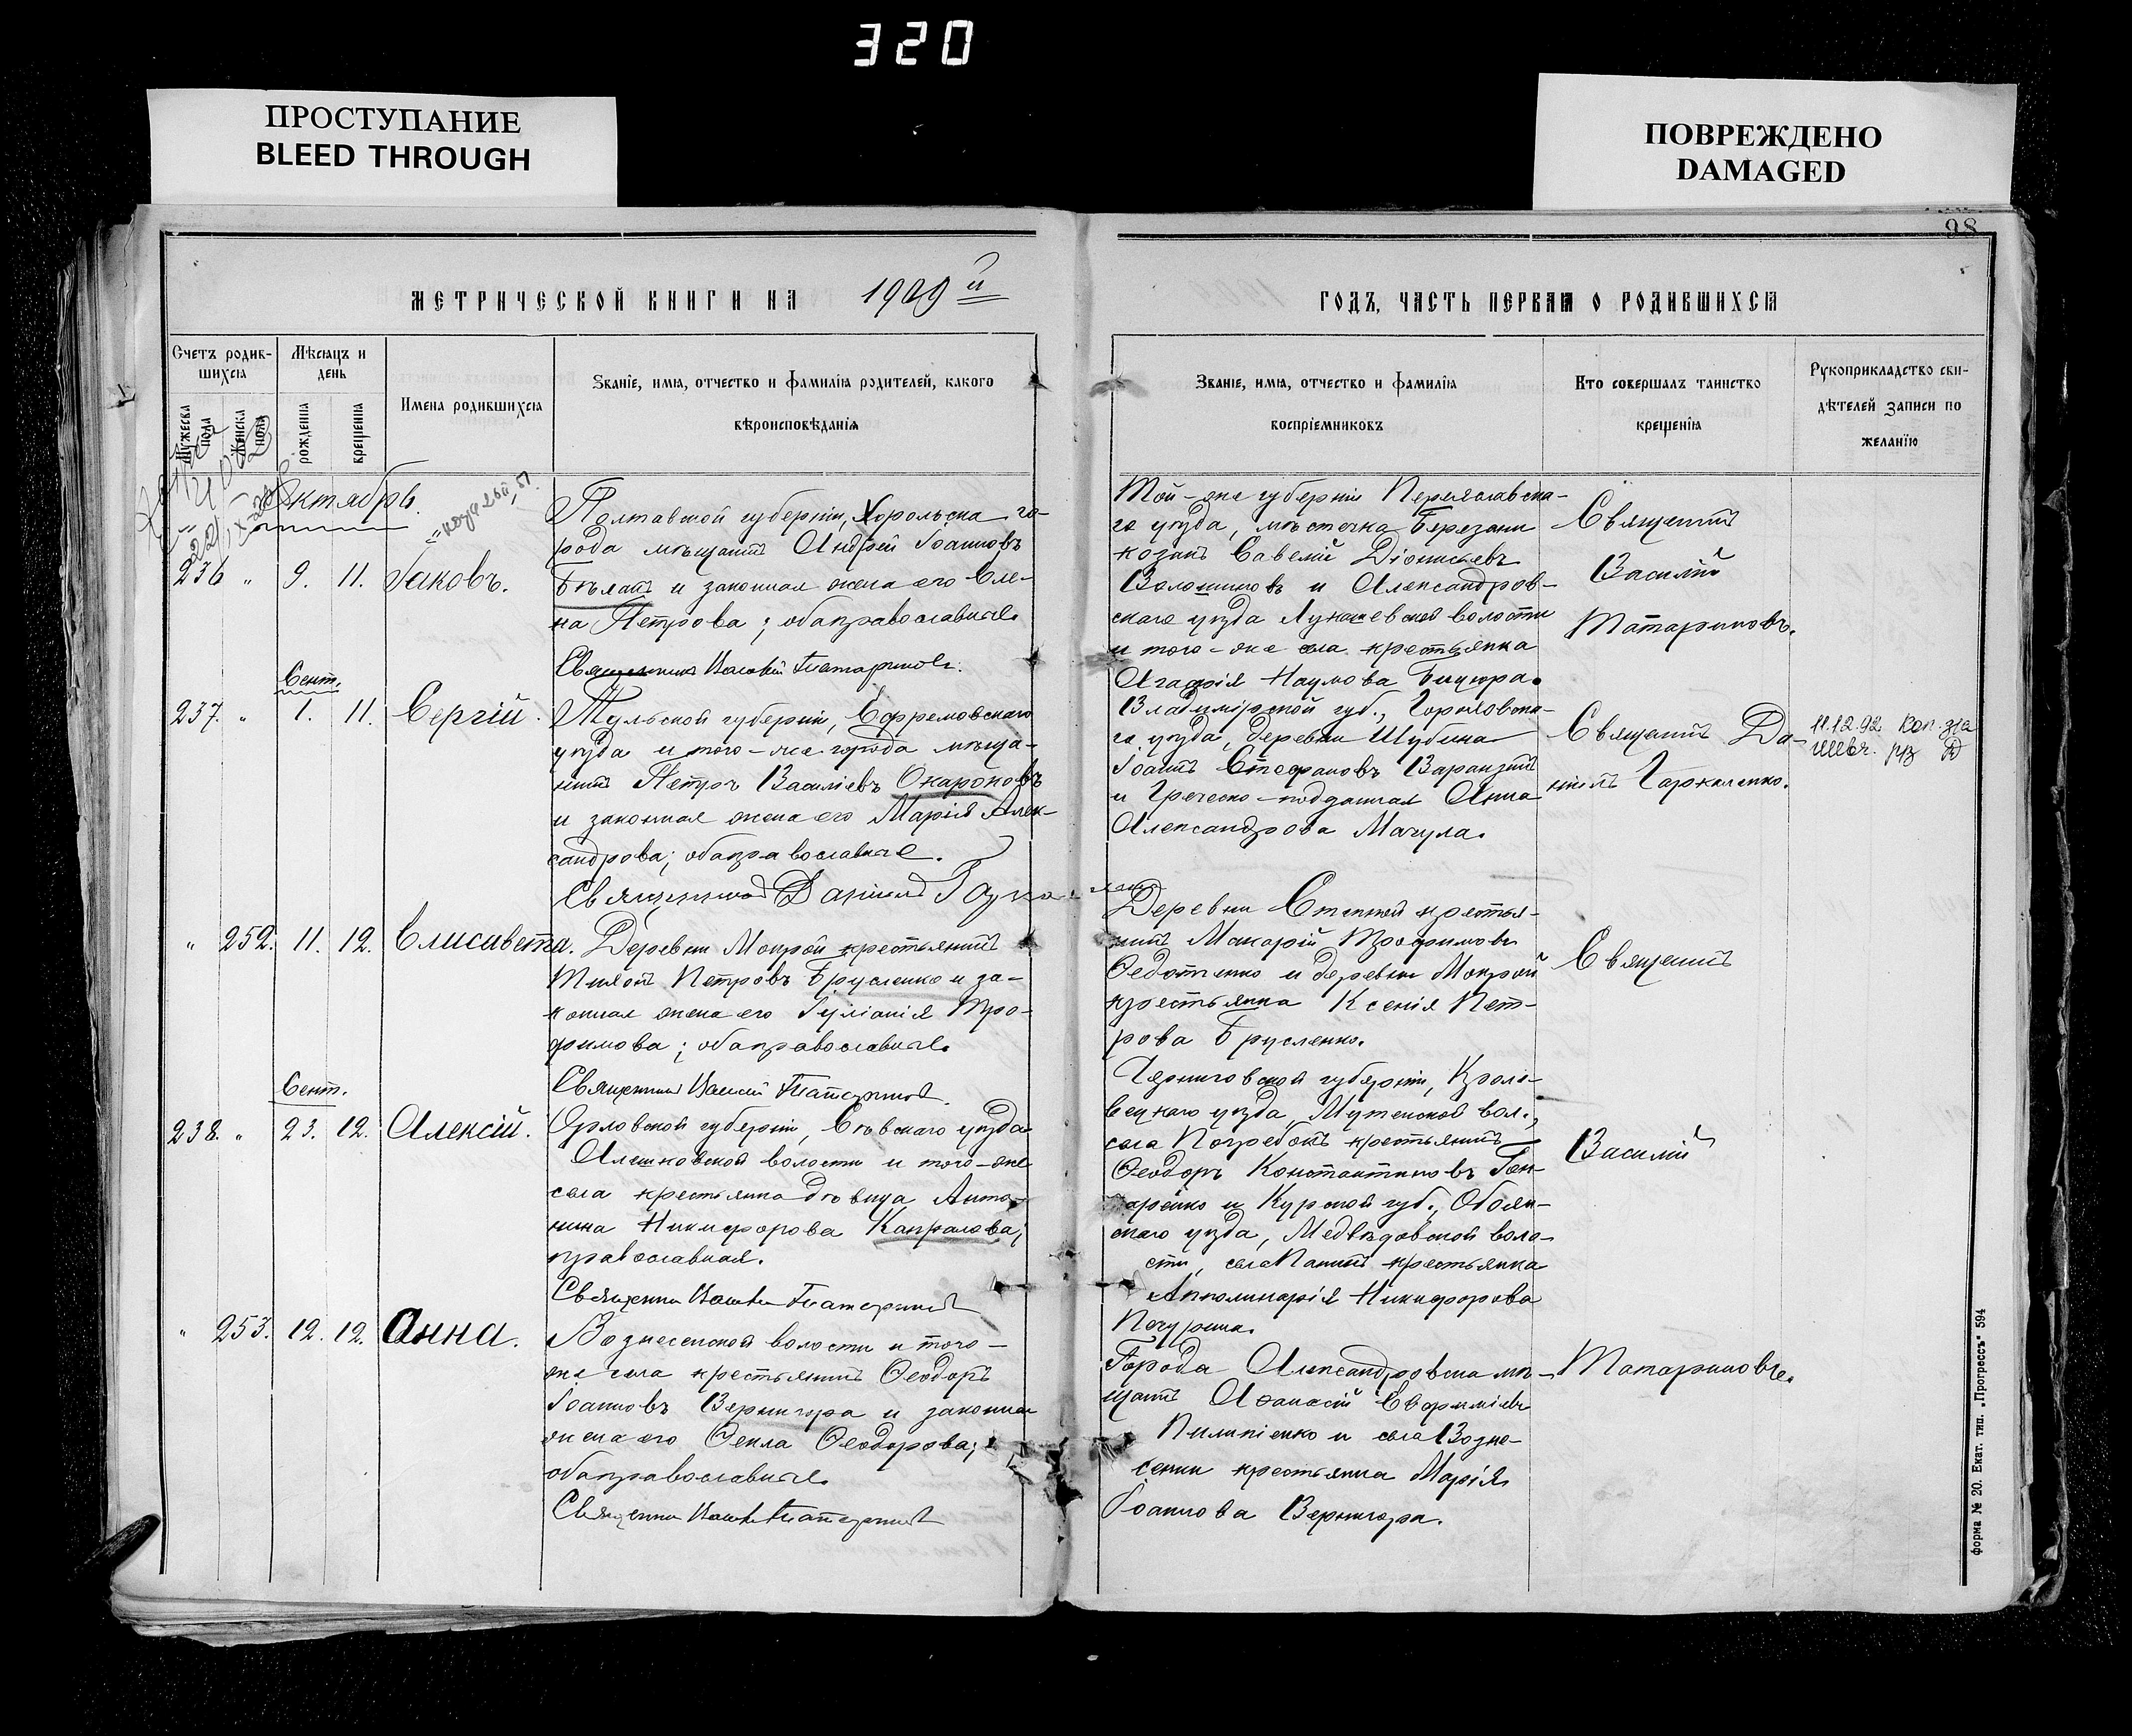 320
ПРОСТУПАНИЕ
BLEED THROUGH
ПОВРЕЖДЕНО
DAMAGED
98
МЕТРИЧЕСКОЙ КНИГИ НА 1909й
ГОДЪ, ЧАСТЬ ПЕРВАЯ О РОДИВШИХСЯ
Счетъ родив-
шихся
Мужеска пола
Женска пола
Мѣсяцъ и
день
рожденія
крещенія
Имена родившихся
Званіе, имя, отчество и фамилія родителей, какого
вѣроисповѣданія
Званіе, имя, отчество и фамилія
воспріемниковъ
Кто совершалъ таинство
крещенія
Рукоприкладство сви-
дѣтелей записи по
желанію
Октябрь.
236 " 9. 11. Іаковъ.
Полтавской губерніи, Хорольска го-
рода мѣщанинъ Андрей Іоанновъ
Бѣлай и законная жена его Еле-
на Петрова; оба православные.
Священникъ Василій Татариновъ.
Той-же губерніи Переяславска-
го уѣзда, мѣстечка Березани
козакъ Савелій Діонисіевъ
Волошиновъ и Александров-
скаго уѣзда Лукашевской волости
и того-же села крестьянка
Агафія Наумова Бицюра.
Священникъ
Василій
Татариновъ.
Сент.
237. " 1. 11. Сергій.
Тульской губерніи, Ефремовскаго
уѣзда и того-же города мѣща-
нинъ Петръ Василіевъ Окороковъ
и законная жена его Марія Алек-
сандрова; оба православные.
Священникъ Даніилъ Гарка
Владимірской губ., Гороховска-
го уѣзда, деревни Шубина
Іоаннъ Стефановъ Варанзинъ
и Греческо-подданная Анна
Александрова Мачула.
Священникъ Да-
ніилъ Гаркаленко.
11.12.92.
" 252. 11. 12. Елисавета.
Деревни Мокрой крестьянинъ
Тихонъ Петровъ Брусленко и за-
конная жена его Іуліанія Тро-
фимова; оба православные.
Священникъ Василій Татариновъ.
Деревни Степной крестья-
нинъ Макарій Трофимовъ
Федотенко и деревни Мокрой
крестьянка Ксенія Пет-
рова Брусленко.
Священникъ
Сент.
238. " 23. 12. Алексій.
Орловской губерніи, Сѣвскаго уѣзда
Алешковской волости и того-же
села крестьянка дѣвица Анто-
нина Никифорова Капралова;
православная.
Священникъ Василій Татариновъ
Черниговской губерніи, Кроле-
вецкаго уѣзда, Мутенской вол.,
села Погребокъ крестьянинъ
Ѳеодоръ Константиновъ Гон-
аренко и Курской губ., Обоян-
скаго уѣзда, Медвѣдовской воло-
сти, села крестьянка
Апполинарія Никифорова
Василій
" 253. 12. 12. Анна.
Вознесенской волости и того-
же села крестьянинъ Ѳеодоръ
Іоанновъ Вернигора и законная
жена его Ѳекла Ѳеодорова;
оба православные.
Священникъ Василій Татариновъ
Города Александровска мѣ-
щанинъ Аѳанасій Евфиміевъ
Пилипенко и села Возне-
сенки крестьянка Марія
Іоаннова Вернигора.
Татариновъ.
форма № 20. Екат. тип. „Прогрессъ" 594